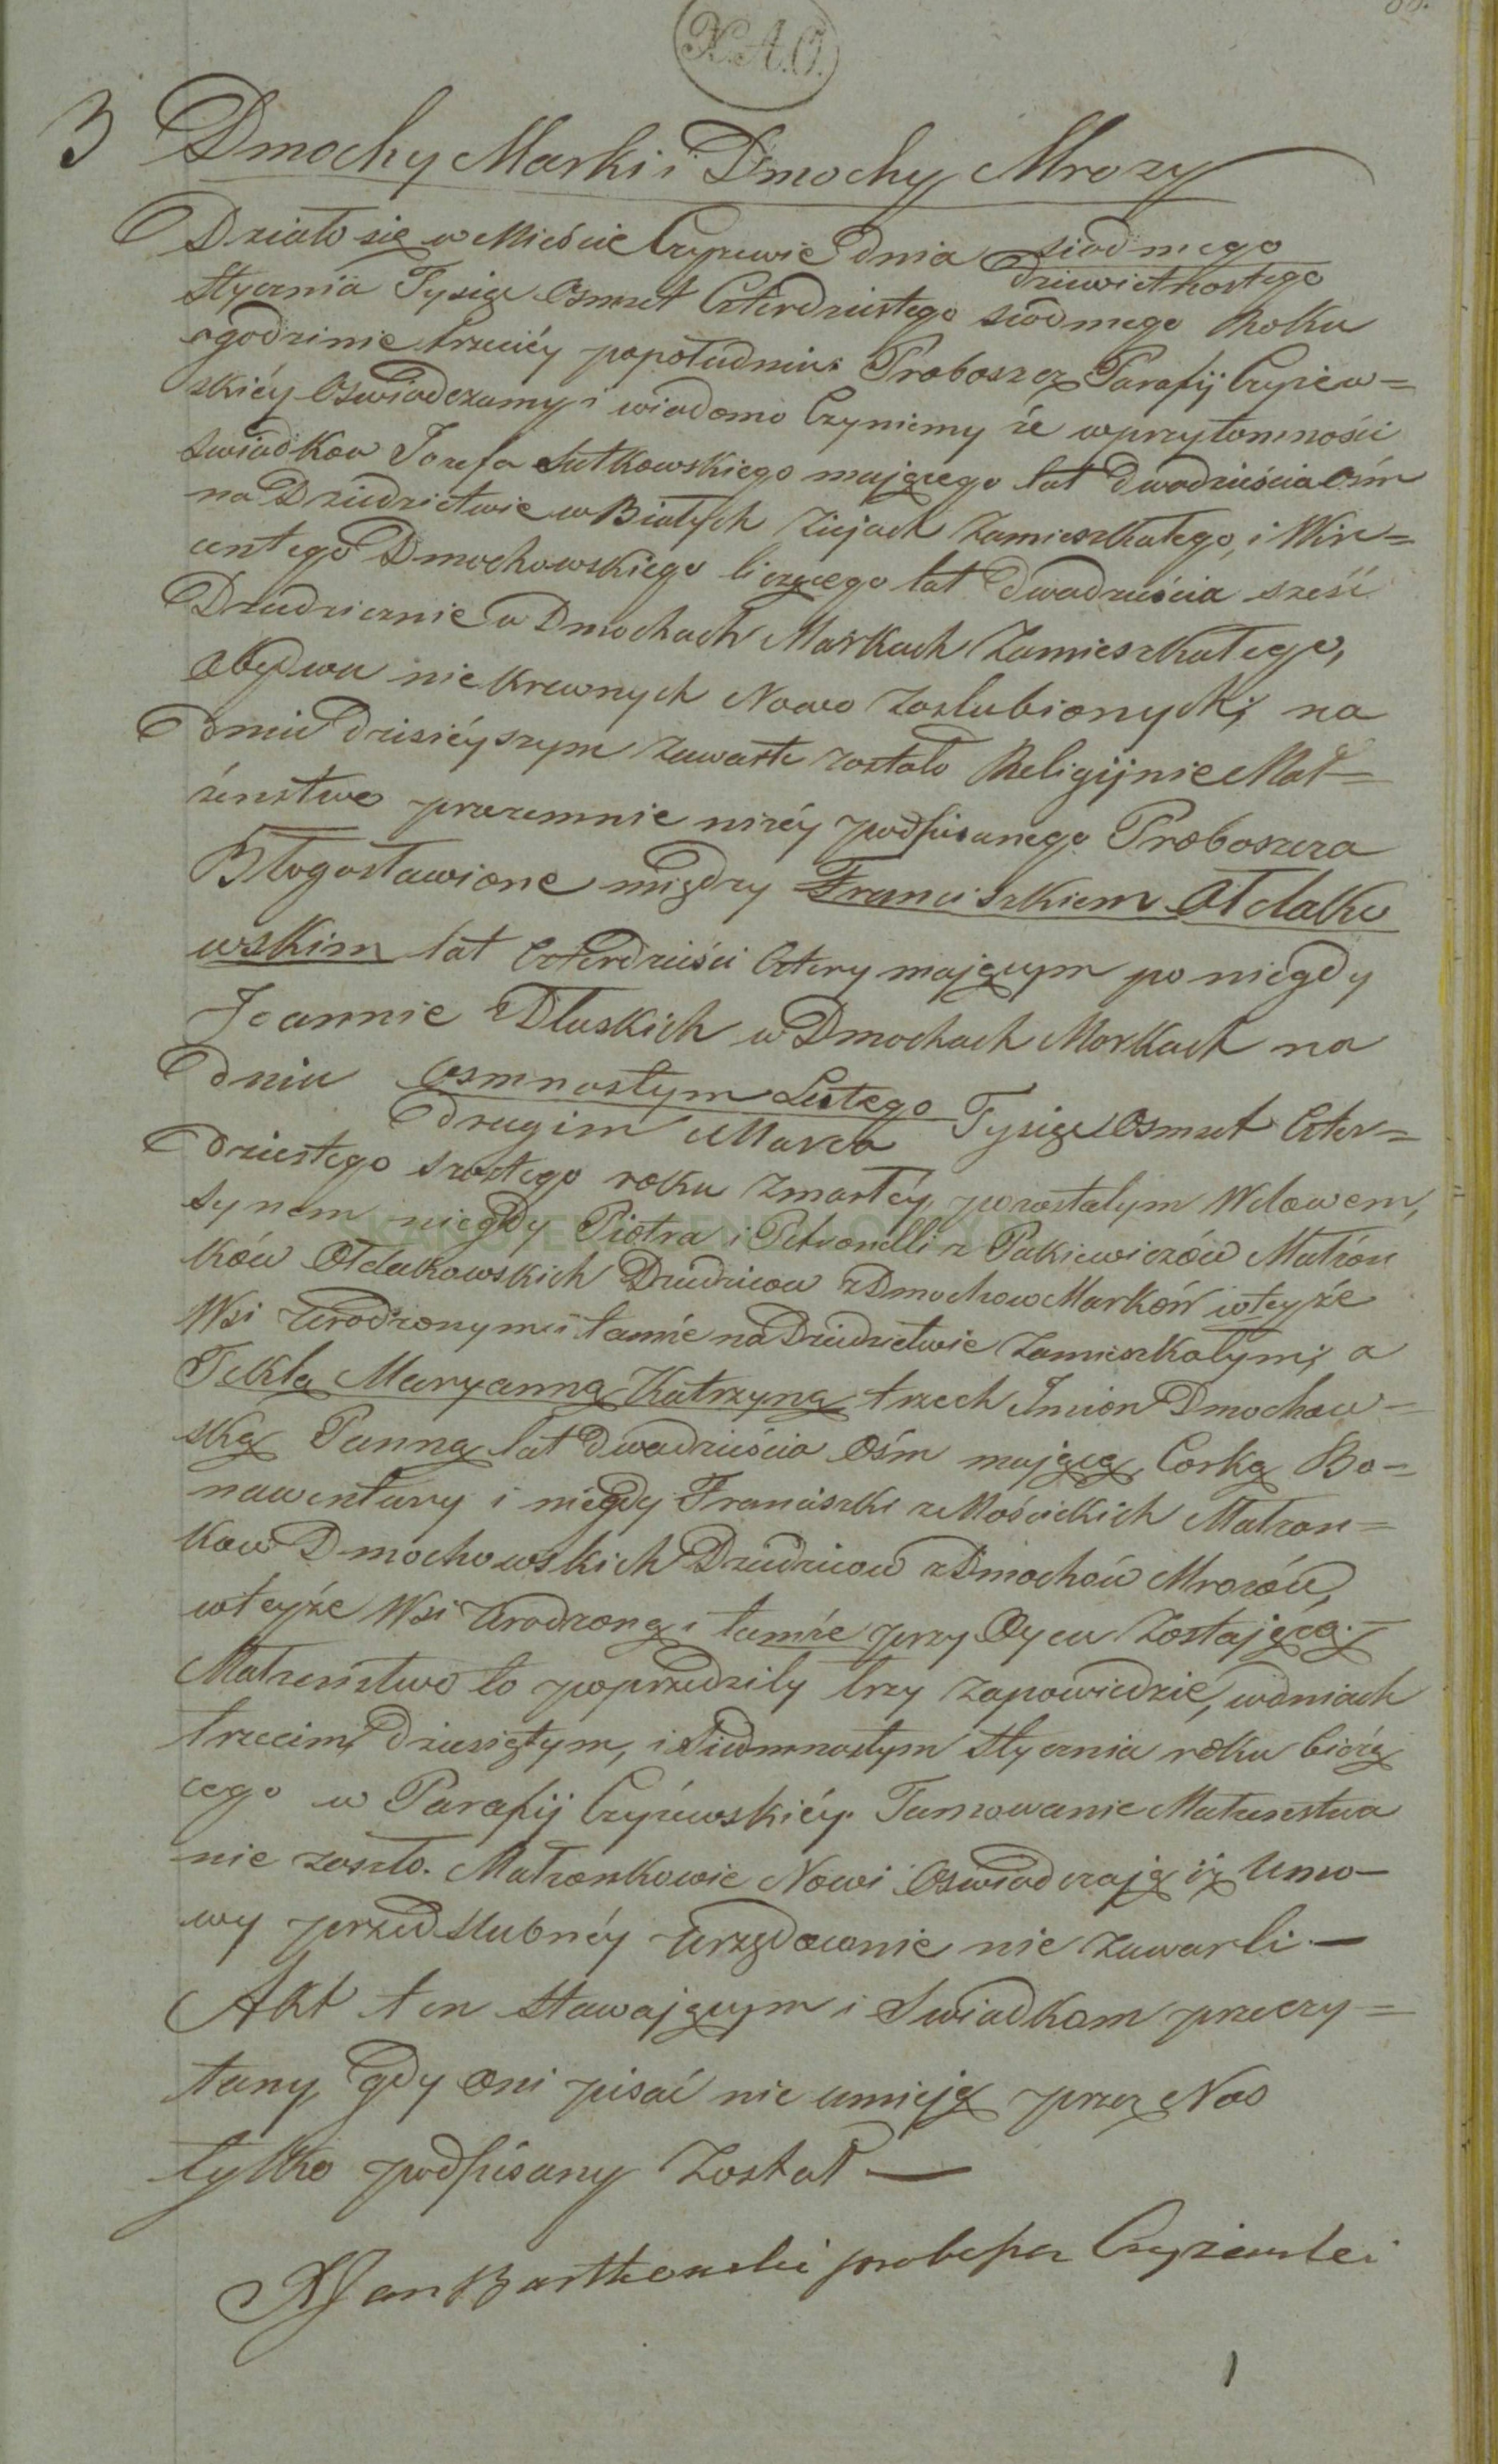 X.A.O.
3 Dmochy Marki i Dmochy Mrozy
Działo się w Mieście Czyzewie dnia siodmego
dziewietnastego
Stycznia Tysiąc Osmset Czterdziestego siodmego Roku
ogodzinie trzeciéy popołudniu: Proboszcz Parafij Czyżew=
skiéy Oswiadczamy i wiadomo Czyniemy że wprzytomności
swiadkow Jozefa Sutkowskiego mającego lat dwadzieścia ośm
na Dziedzictwie w Białych Ziejach Zamieszkałego, i Win=
centego Dmochowskiego liczącego lat dwadzieścia sześć
Dziedzicznie w Dmochach Markach Zamieszkałego,
obydwu niekrewnych Nowo Zaslubionych; na
dniu dzisiéyszym zawarte zostało Religijnie Mał=
żeństwo przezemnie niżéy podpisanego Proboszcza
Błogosławione między Franciszkiem Ołdako
wskim lat Czterdzieści Cztery mającym po niegdy
Joannie Dłuskich w Dmochach Markach na
dniu osmnastym Lutego
drugim Marca Tysiąc Osmset Czter=
dziestego szostego roku Zmarłéy, pozostałym Wdowem,
synem niegdy Piotra i Petronelli z Pakiewiczów Małżon
ków Ołdakowskich Dziedzicow z Dmochow Marków wteyże
Wsi Urodzonym i tamże na Dziedzictwie Zamieszkałym; a
Teklą Maryanną Katarzyną trzech Imion Dmochow=
ską Panną lat dwadzieścia Ośm mającą, Corką Bo=
nawentury i niegdy Franciszki z Mościckich Małzon=
kow Dmochowskich Dziedzicow z Dmochów Mrozów,
wteyże Wsi Urodzoną i tamże przy Oycu Zostającą.—
Małzeństwo to poprzedziły trzy Zapowiedzie, wdniach
trzecim, dziesiątym, i Siedmnastym Stycznia roku biorą
cego w Parafij Czyżewskiéy. Tamowanie Małzenstwa
nie zaszło. Małzonkowie Nowi Oswiadczają iż Umo—
wy przedslubnéy Urzędownie nie zawarli.—
Akt ten Stawającym i Swiadkom przeczy=
tany, gdy oni pisać nie umieją przez Nas
tylko podpisany Został—
X Jan Bartkowski proboszcz Czyżewski